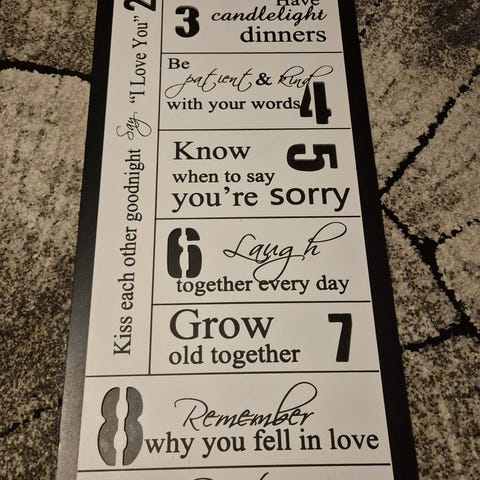 Kiss each other goodnight Say "I Love You" 2
3 Have
candlelight
dinners
Be
patient & kind
with your words 4
Know
when to say
you're sorry 5
6 Laugh
together every day
Grow
old together 7
8 Remember
why you fell in love